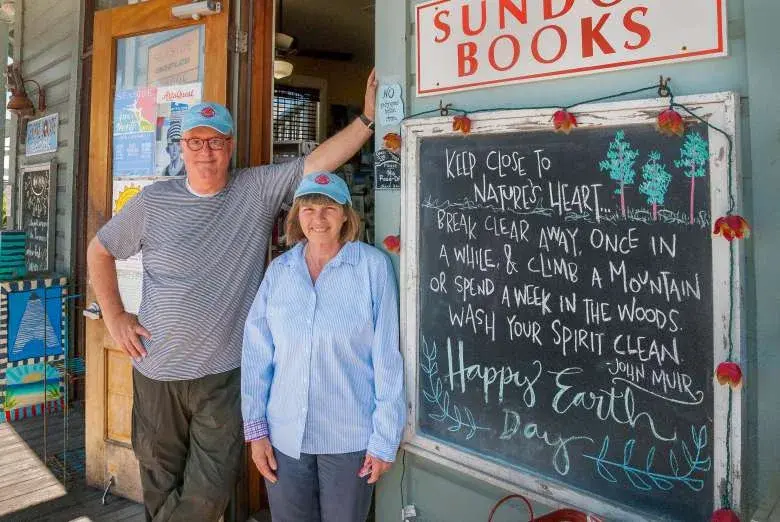 SUNDOG
BOOKS
KEEP CLOSE TO
NATURE'S HEART...
BREAK CLEAR AWAY, ONCE IN
A WHILE, & CLIMB A MOUNTAIN
OR SPEND A WEEK IN THE WOODS.
WASH YOUR SPIRIT CLEAN
JOHN MUIR
Happy Earth
Day
NO